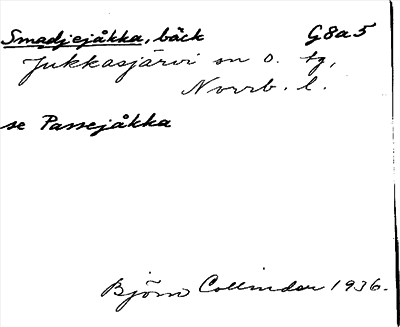 Smadjejåkka, bäck G8a5
Jukkasjärvi sn o. tg,
Norrb. l.
se Passejåkka
Björn Collinder 1936.